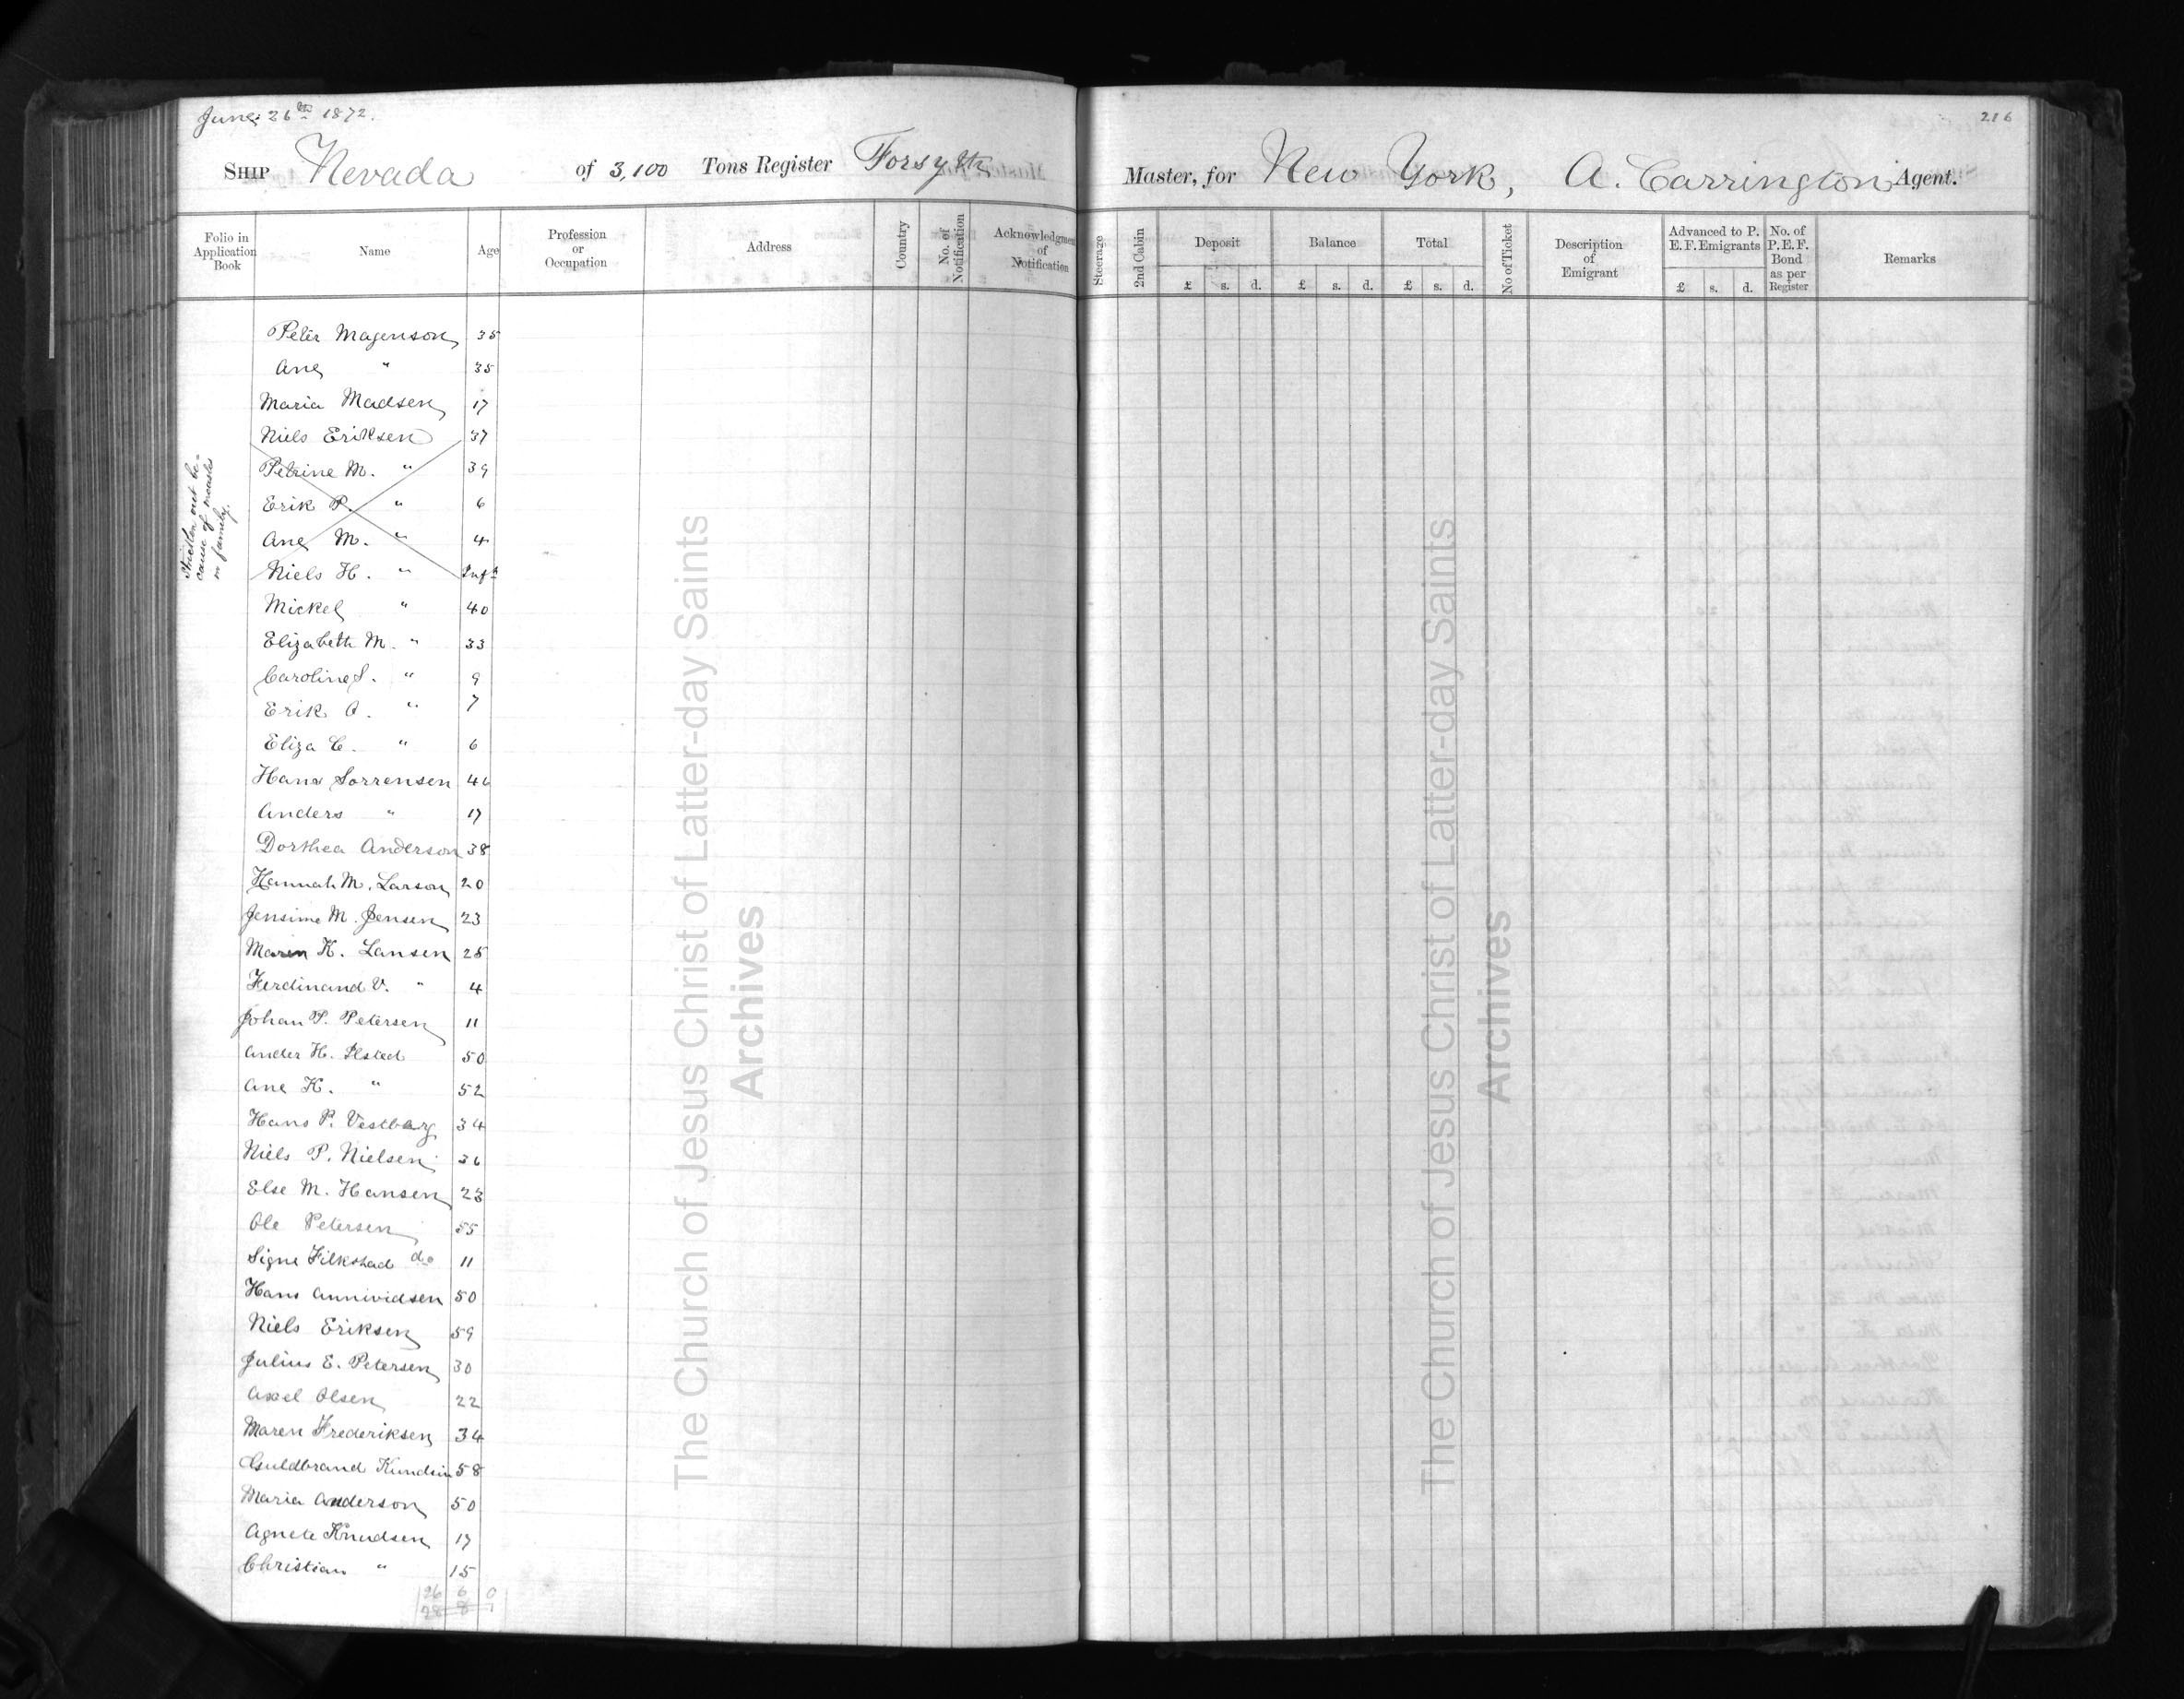 June 26th 1872.
216
Ship Nevada of 3,100 Tons Register Forsyth Master, for New York, A. Carrington Agent.
Folio in Application Book
Name
Age
Profession or Occupation
Address
Country
No. of Notification
Acknowledgment of Notification
Steerage
2nd Cabin
Deposit £ s. d.
Balance £ s. d.
Total £ s. d.
No of Ticket
Description of Emigrant
Advanced to P. E. F. Emigrants £ s. d.
No. of P.E.F. Bond as per Register
Remarks
Peter Magenson 35
Ane " 35
Maria Madsen 17
Niels Eriksen 37
Petrine M. " 39
Erik P. " 6
Ane M. " 4
Niels H. " Inft
Stricken out be-
cause of measles
in family.
Mickel " 40
Elizabeth M. " 33
Caroline S. " 9
Erik A. " 7
Eliza C. " 6
Hans Sorrensen 46
Anders " 17
Dorthea Anderson 38
Hannah M. Larson 20
Jensine M. Jensen 23
Maren K. Lansen 25
Ferdinand V. " 4
Johan P. Petersen 11
Ander H. Ilsted 50
Ane K. " 52
Hans P. Vestbarg 34
Niels P. Nielsen 36
Else M. Hansen 23
Ole Petersen 55
Signe Filkshad do 11
Hans Annividsen 50
Niels Eriksen 59
Julius E. Petersen 30
Axel Olsen 22
Maren Frederiksen 34
Guldbrand Kundsin 58
Maria Anderson 50
Agnete Knudsen 17
Christian " 15
26 6 0
28 8 1
The Church of Jesus Christ of Latter-day Saints
Archives
The Church of Jesus Christ of Latter-day Saints
Archives